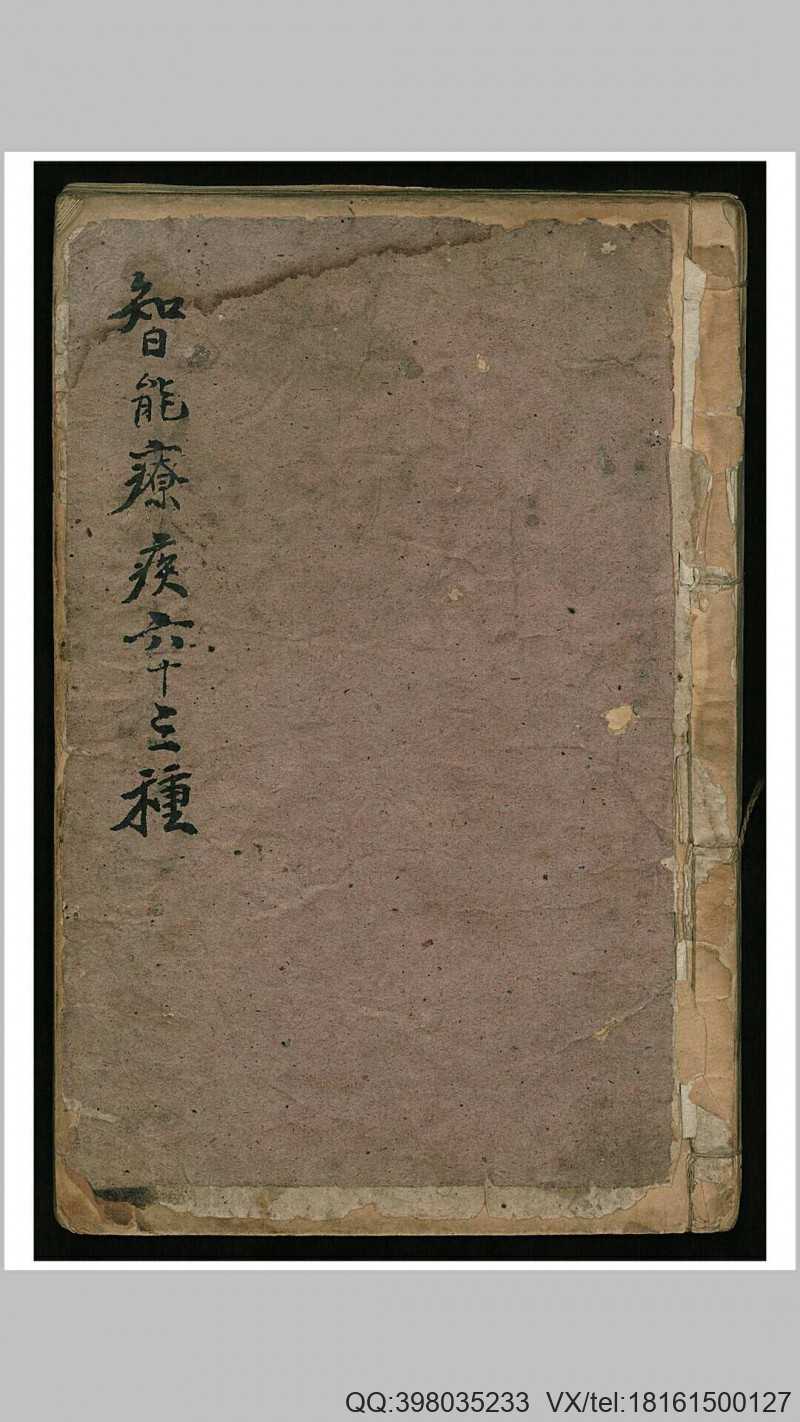 智能療疾六十三種
QQ:398035233 VX/tel:18161500127